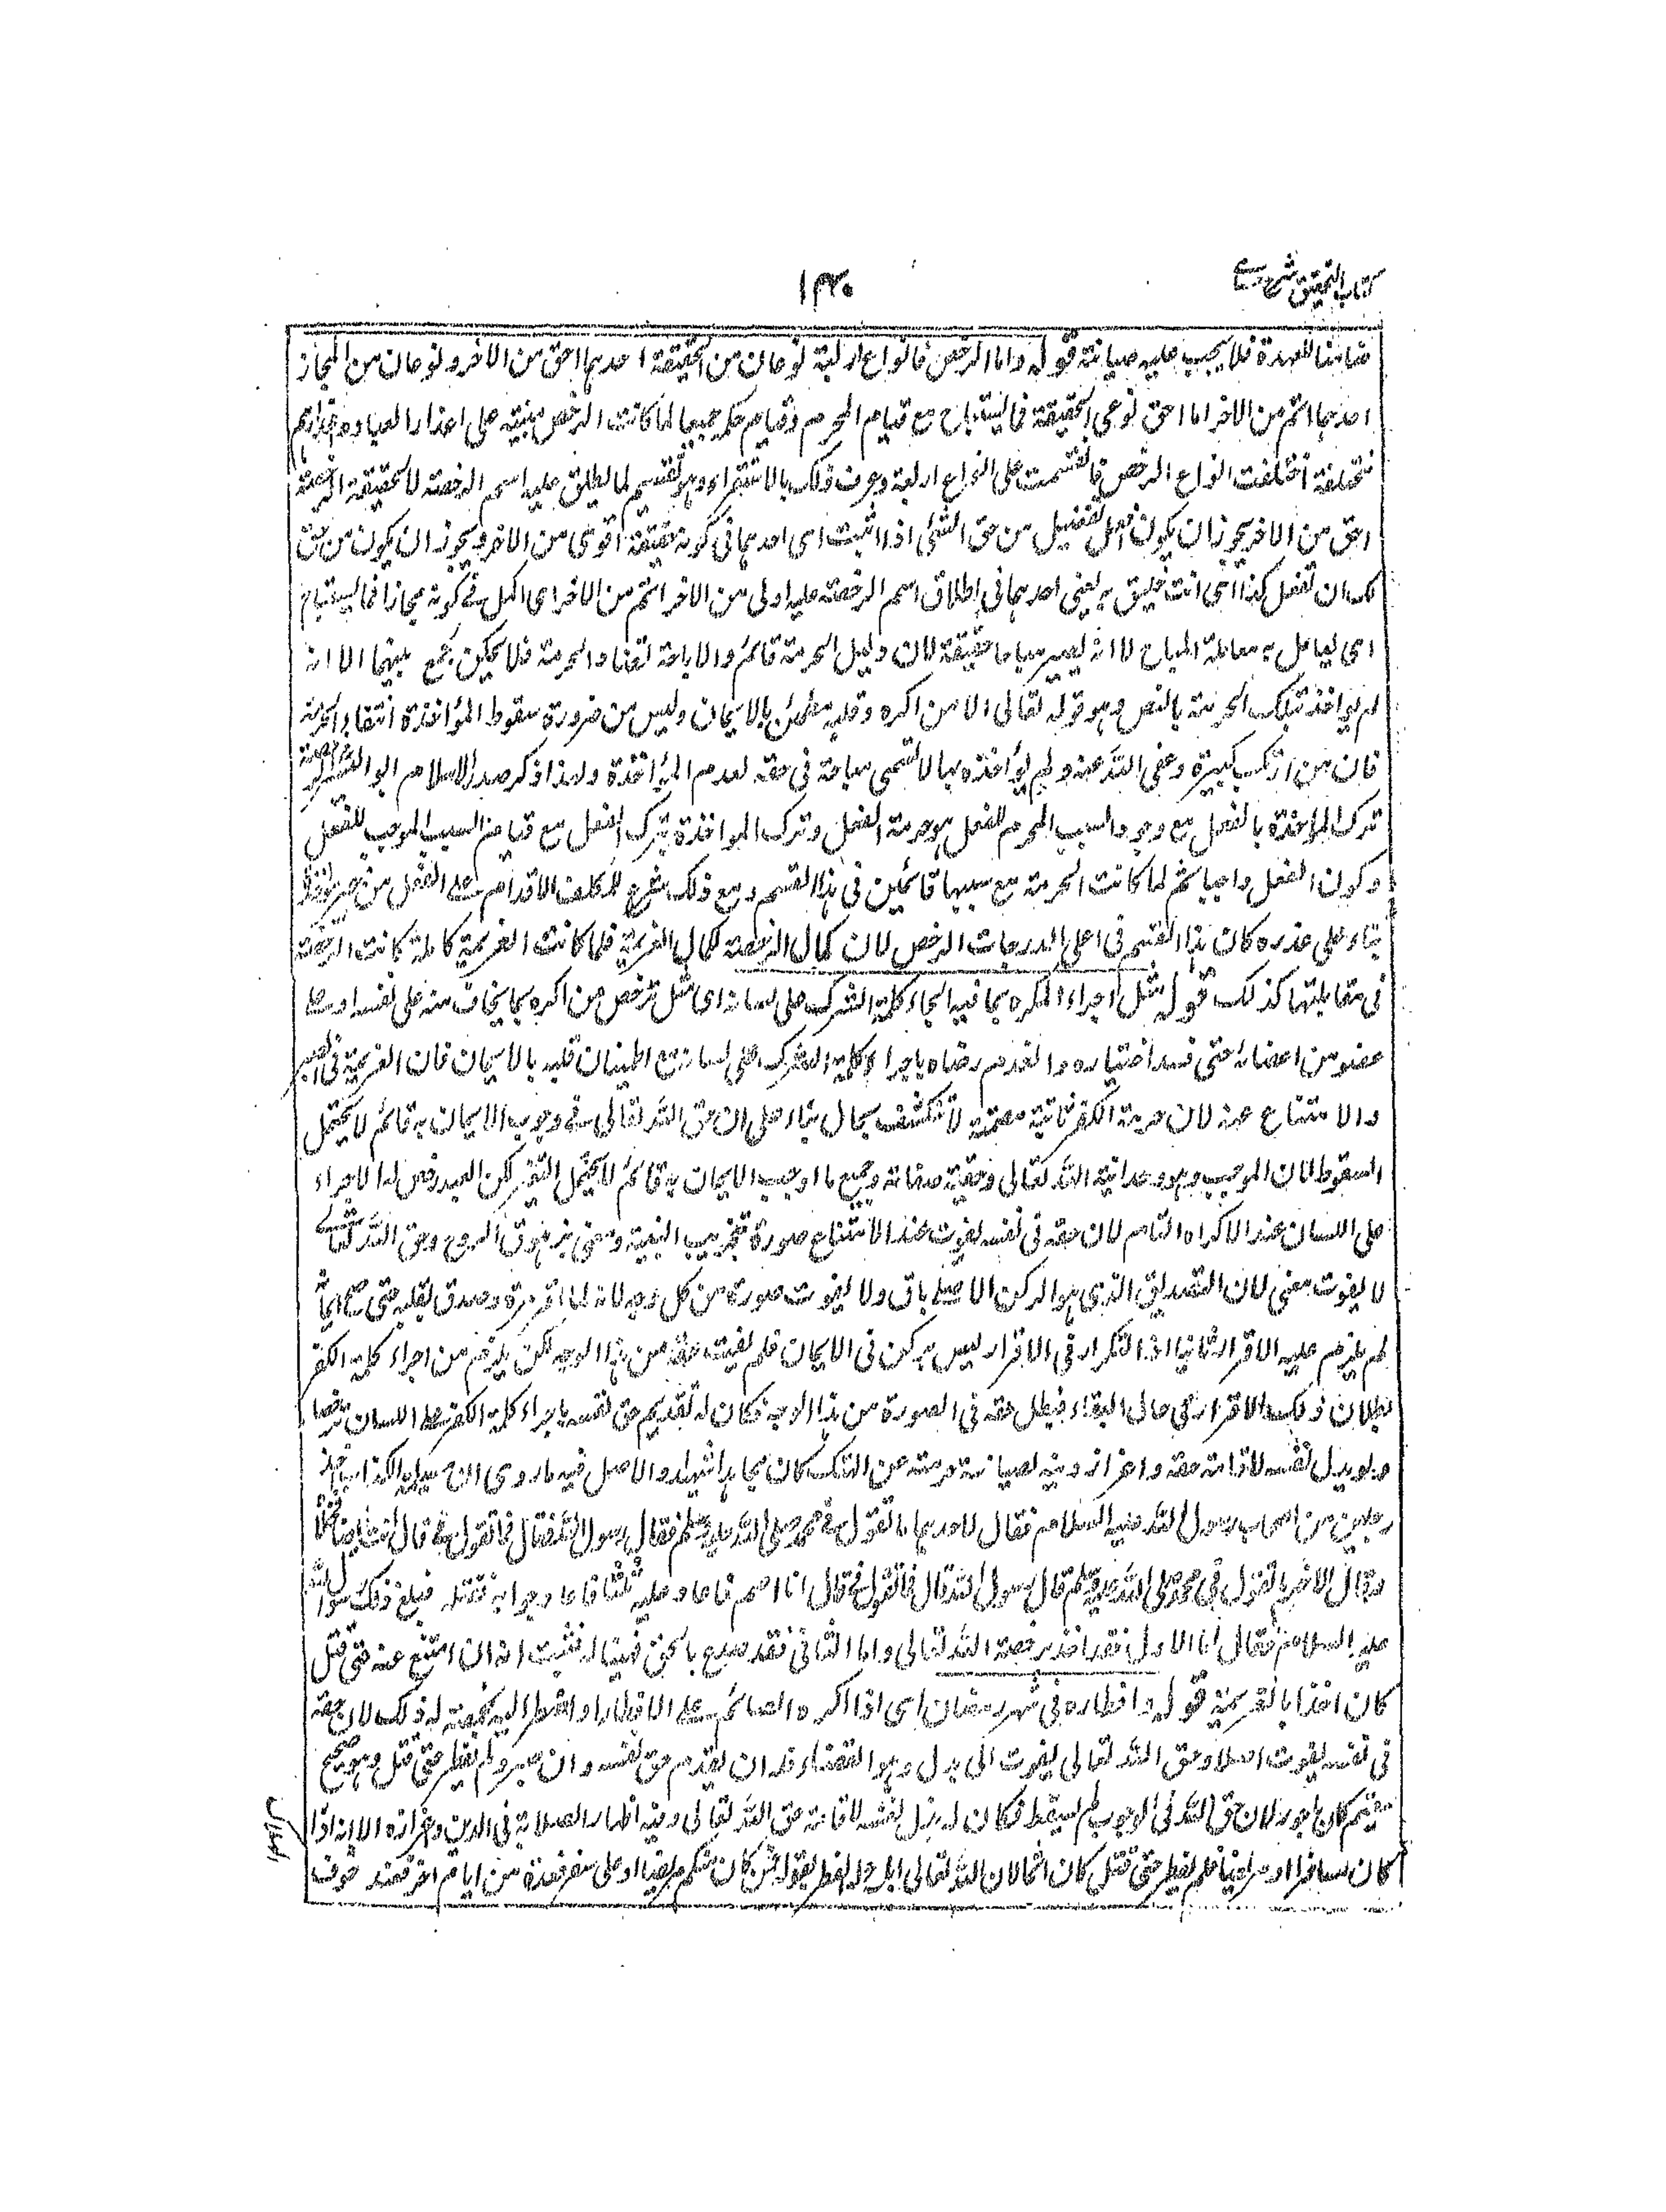 كتاب التحقيق شرح حسامى
١٣٠
ضامنا للعهدة فلا يجب عليه صيانته قوله واما الرخص فانواع اربعة نوعان من الحقيقة احدهما احق من الاخر ونوعان من المجاز
احدهما اتم من الاخر اما احق نوعى الحقيقة فما يستباح مع قيام المحرم وقيام حكمه جميعا لما كانت الرخص مبنية على اعذار العباد واعذارهم
مختلفة اختلفت انواع الرخص فانقسمت على انواع اربعة وعرف ذلك بالاستقراء وهو تقسيم لما يطلق عليه اسم الرخصة لا لحقيقة الرخصة
احق من الاخر يجوز ان يكون افعل التفضيل من حق الشئ اذا اثبت اى احدهما فى كونه حقيقة اقوى من الاخر ويجوز ان يكون من حق
لك ان تفعل كذا اى انت خليق به يعنى احدهما فى اطلاق اسم الرخصة عليه اولى من الاخر اتم من الاخر اى اكمل فى كونه مجازا فما يستباح
اى يعامل به معاملة المباح لا انه يصير مباحا حقيقة لان دليل الحرمة قائم والاباحة تضاد الحرمة فلا يمكن جمع بينهما الا انه
لم يؤاخذ بتلك الحرمة بالنص وهو قوله تعالى الا من اكره وقلبه مطمئن بالايمان وليس من ضرورة سقوط المؤاخذة انتفاء الحرمة
فان من ارتكب كبيرة وعفى الله عنه ولم يؤاخذه بها لا تسمى مباحة فى حقه لعدم المؤاخذة ولهذا ذكر صدر الاسلام ابو اليسر الرخصة
ترك المؤاخذة بالفعل مع وجود السبب المحرم للفعل وحرمة الفعل وترك المواخذة بترك الفعل مع قيام السبب الموجب للفعل
وكون الفعل واجبا ثم لما كانت الحرمة مع سببها قائمين فى هذا القسم ومع ذلك شرع للمكلف الاقدام على الفعل من غير مؤاخذة
بناء على عذره كان هذا القسم فى اعلى الدرجات الرخص لان كمال الرخصة لكمال العزيمة فلما كانت العزيمة كاملة كانت الرخصة
فى مقابلتها كذلك قوله مثل اجراء المكره بما فيه الجاء كلمة الشرك على لسانه اى مثل ترخص من اكره بما يخاف منه على نفسه او على
عضو من اعضائه حتى فسد اختياره وانعدم رضاه باجراء كلمة الشرك على لسانه مع اطمينان قلبه بالايمان فان العزيمة فى الصبر
والامتناع عنه لان حرمة الكفر ثابتة مصمتة لا تنكشف بحال بناء على ان حق الله تعالى فى وجوب الايمان به قائم لا يحتمل
السقوط لان الموجب وهو وحدانية الله تعالى وحقية صفاته وجميع ما اوجب الايمان به قائم لا يحتمل التغير لكن العبد رخص له الاجراء
على اللسان عند الاكراه التام لان حقه فى نفسه يفوت عند الامتناع صورة بتخريب البنية ومعنى بزهوق الروح وحق الله تعالى
لا يفوت معنى لان التصديق الذى هو الركن الاصلى باق ولا يفوت صورة من كل وجه لانه لما اقر مرة وصدق بقلبه حتى صح ايمانه
لم يلزم عليه الاقرار ثانيا اذ التكرار فى الاقرار ليس بركن فى الايمان فلم يفت حقه من هذا الوجه لكن يلزم من اجراء كلمة الكفر
بطلان ذلك الاقرار فى حال البقاء فبطل حقه فى الصورة من هذا الوجه فكان له تقديم حق نفسه باجراء كلمة الكفر على اللسان ترخصا
ولو بذل نفسه لاقامة حقه واعزاز دينه لصيانة حرمته عن الهتك كان مجاهدا شهيدا والاصل فيه ما روى ان مسيلمة الكذاب اخذ
رجلين من اصحاب رسول الله عليه السلام فقال لاحدهما ما تقول فى محمد صلى الله عليه وسلم فقال رسول الله فقال فما تقول فى قال انت ايضا فخلاه
وقال للاخر ما تقول فى محمد صلى الله عليه وسلم قال رسول الله قال فما تقول فى قال انا اصم فاعاد عليه ثلثا فاعاد جوابه فقتله فبلغ ذلك رسول الله
عليه السلام فقال اما الاول فقد اخذ برخصة الله تعالى واما الثانى فقد صدع بالحق فهنيئا له فثبت انه ان امتنع عنه حتى قتل
كان اخذا بالعزيمة قوله وافطاره فى شهر رمضان اى اذا اكره الصائم على الافطار او اضطر اليه بمخمصة له ذلك لان حقه
فى نفسه يفوت اصلا وحق الله تعالى يفوت الى بدل وهو القضاء فله ان يقدم حق نفسه وان صبر ولم يفطر حتى قتل وهو صحيح
مقيم كان ماجورا لان حق الله فى الوجوب لم يسقط فكان له بذل نفسه لاقامة حق الله تعالى وفيه اظهار الصلابة فى الدين واعزازه الا انه اذا
كان مسافرا او مريضا فلم يفطر حتى قتل كان اثما لان الله تعالى اباح له الفطر بقوله فمن كان منكم مريضا او على سفر فعدة من ايام اخر فعند خوف